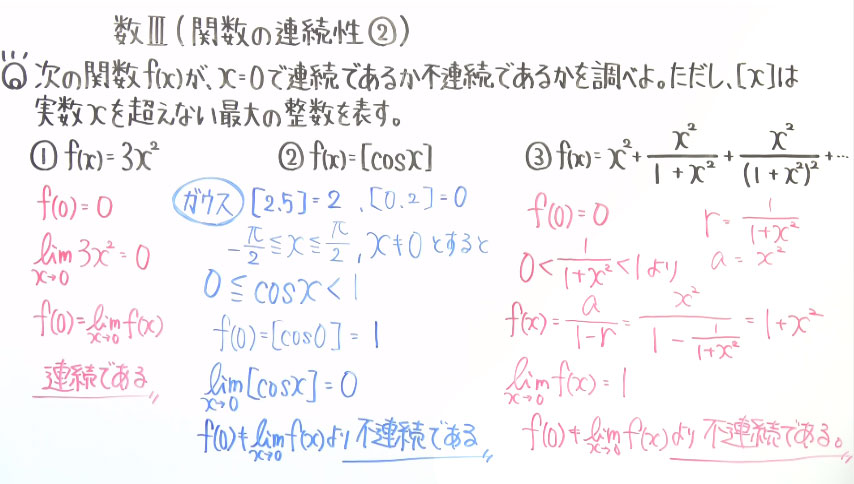 数Ⅲ(関数の連続性②)
Q 次の関数f(x)が、x=0で連続であるか不連続であるかを調べよ。ただし、[x]は
実数xを超えない最大の整数を表す。
① f(x)=3x²
f(0)=0
lim x→0 3x²=0
f(0)=lim x→0 f(x)
連続である
② f(x)=[cosx]
ガウス [2.5]=2、[0.2]=0
-π/2≦x≦π/2、x≠0とすると
0≦cosx<1
f(0)=[cos0]=1
lim x→0 [cosx]=0
f(0)≠lim x→0 f(x)より不連続である
③ f(x)=x²+x²/(1+x²)+x²/(1+x²)²+…
f(0)=0 r=1/(1+x²)
0<1/(1+x²)<1より a=x²
f(x)=a/(1-r)=x²/(1-1/(1+x²))=1+x²
lim x→0 f(x)=1
f(0)≠lim x→0 f(x)より不連続である。